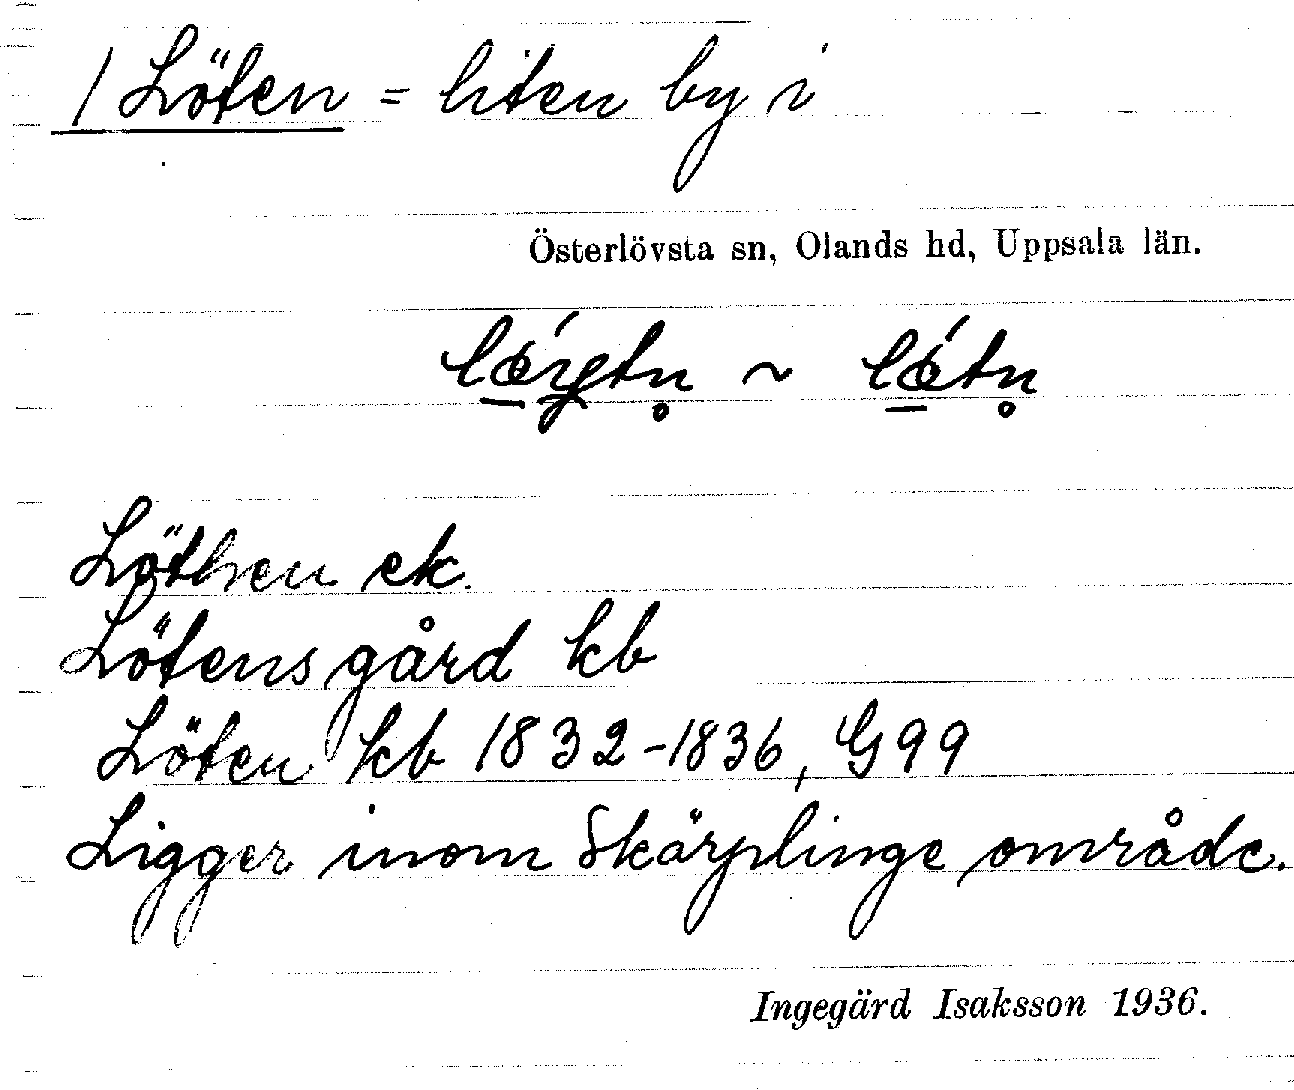 / Löten = liten by i
Österlövsta sn, Olands hd, Uppsala län.
Löthen ek.
Lötens gård kb
Löten kb 1832-1836, G99
Ligger inom Skärplinge område.
Ingegärd Isaksson 1936.